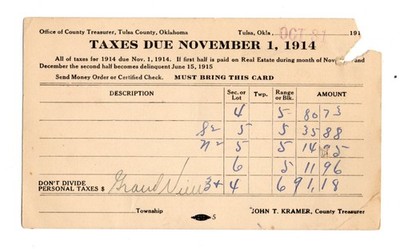 Office of County Treasurer, Tulsa County, Oklahoma Tulsa, Okla. OCT 31 191
TAXES DUE NOVEMBER 1, 1914
All of taxes for 1914 due Nov. 1, 1914. If first half is paid on Real Estate during month of Nov
December the second half becomes delinquent June 15, 1915
Send Money Order or Certified Check. MUST BRING THIS CARD
DESCRIPTION Sec. or Lot Twp. Range or Blk. AMOUNT
4 5 80 73
S2 5 5 35 88
N2 5 5 14 95
6 5 11 96
DON'T DIVIDE
PERSONAL TAXES $ Grand View 3+4 6 91,18
Township 5 JOHN T. KRAMER, County Treasurer